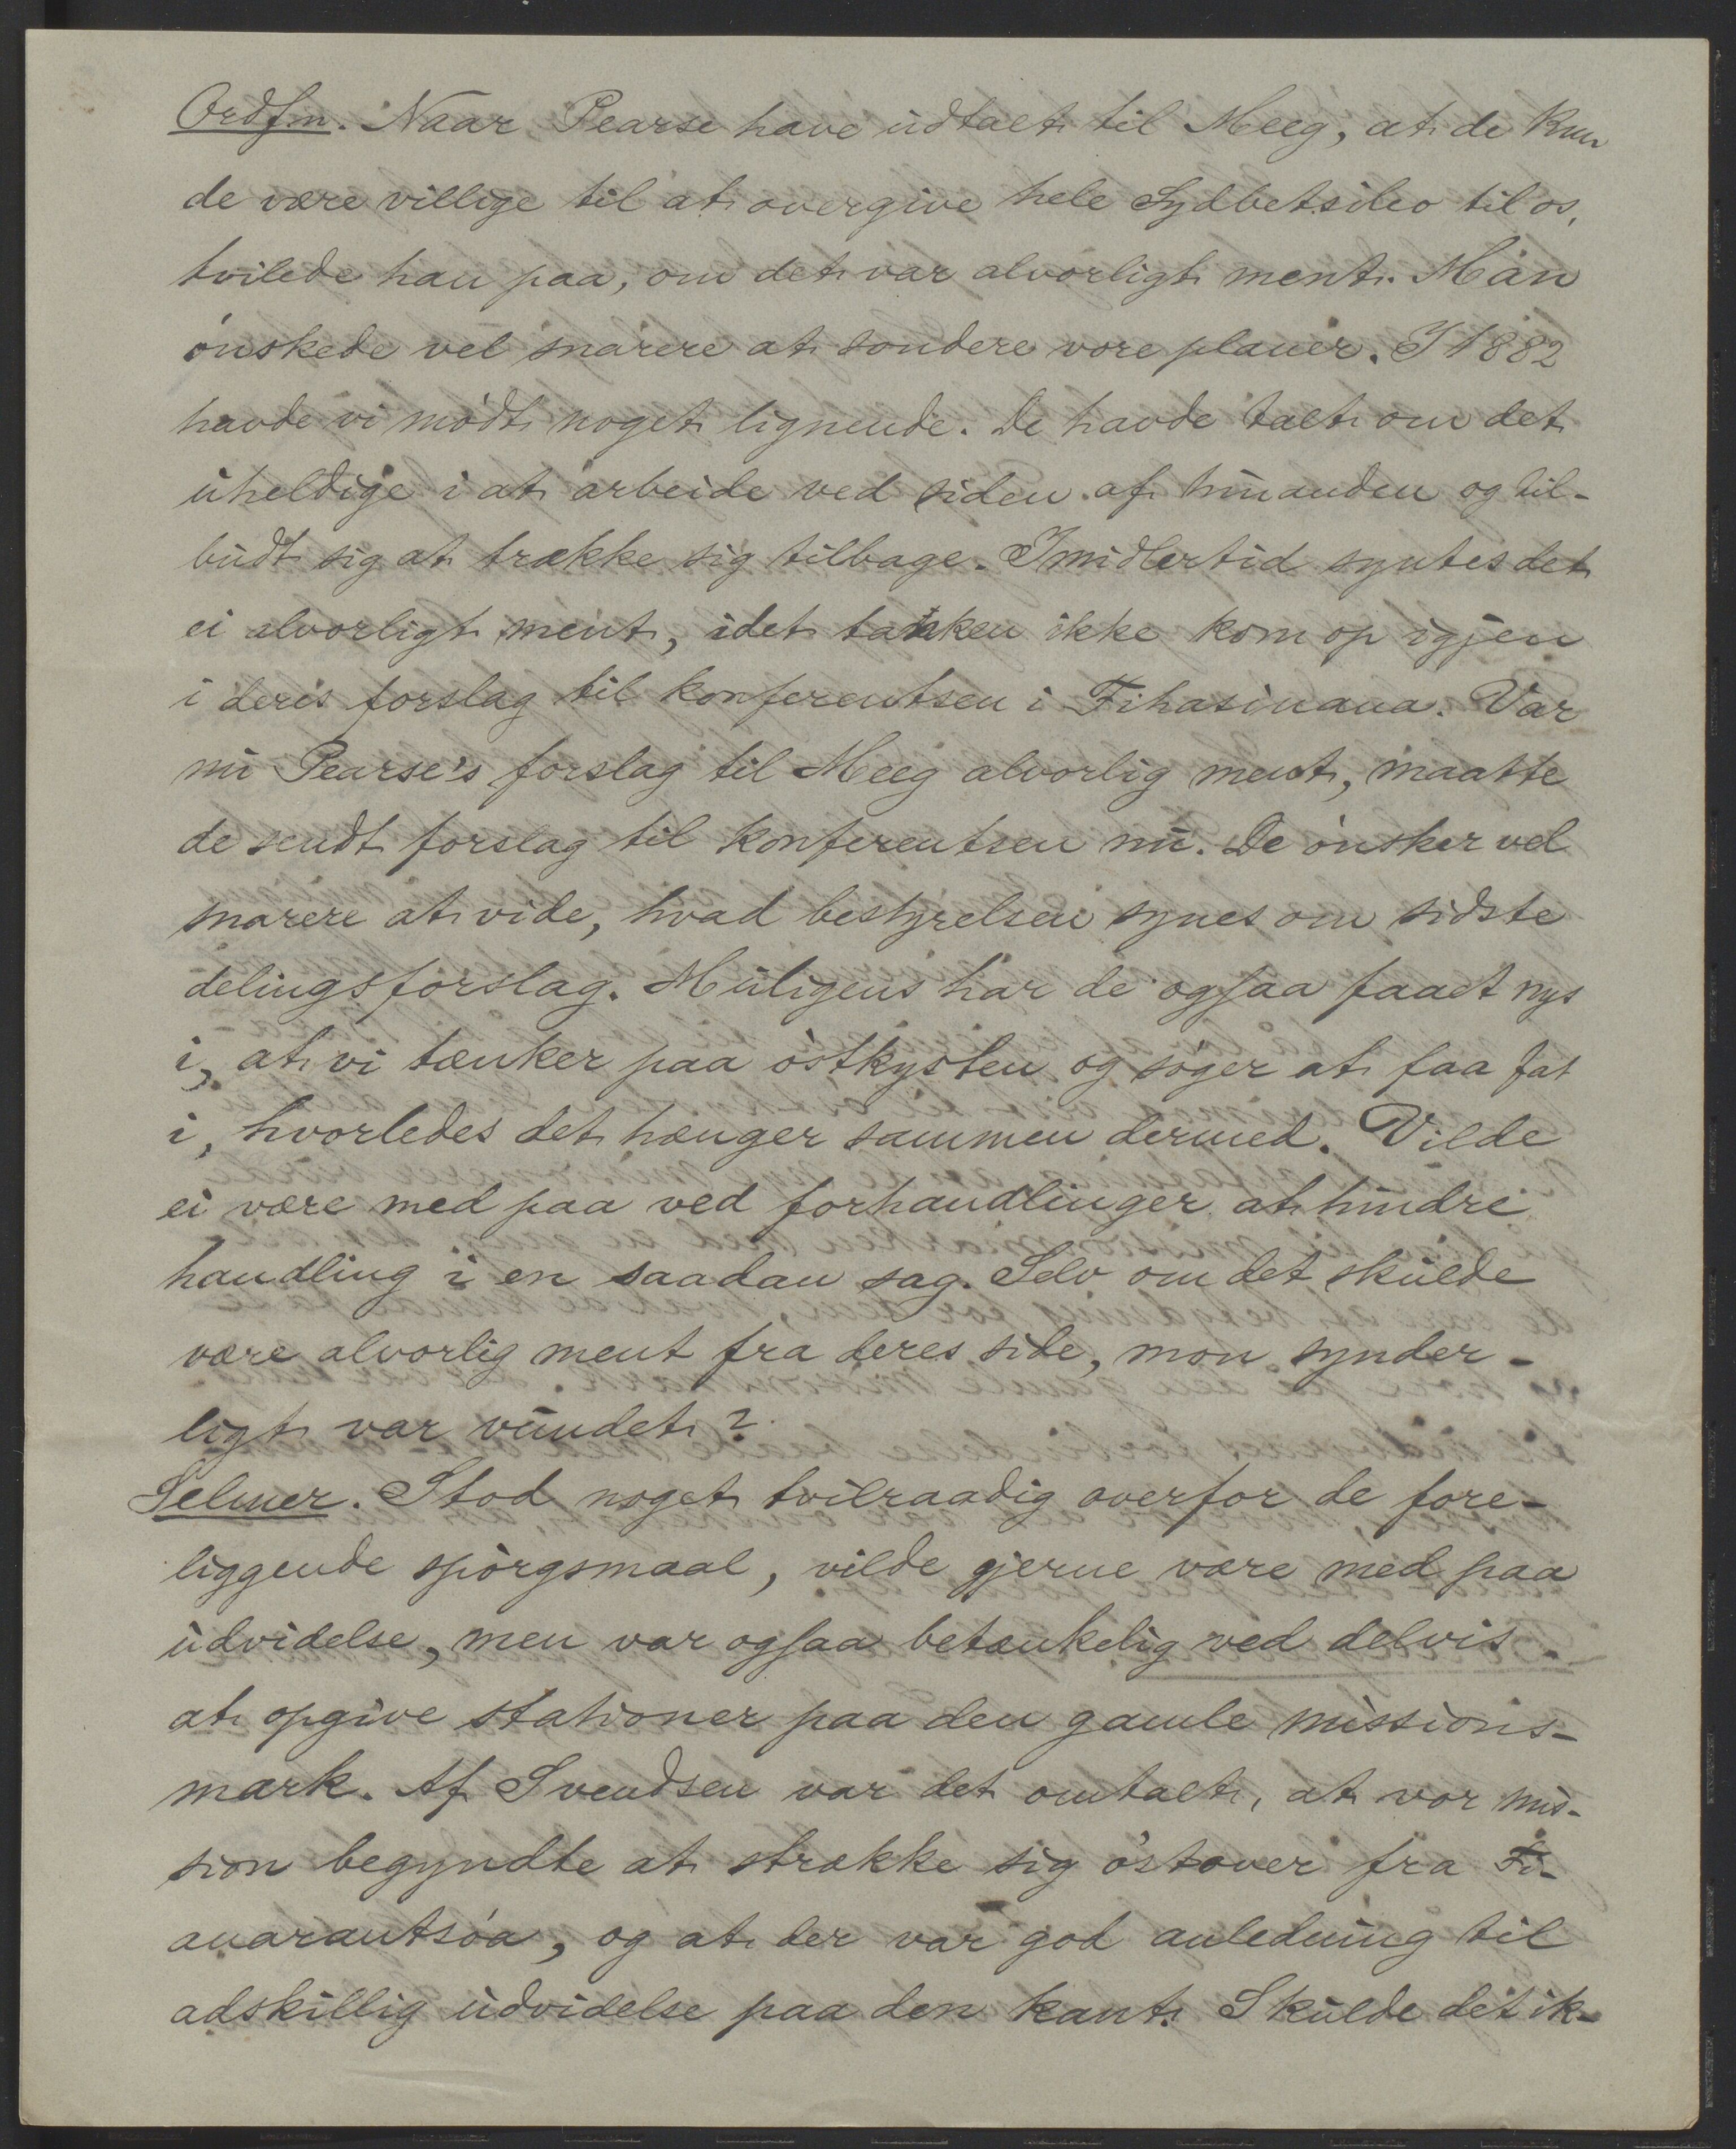 Ordfm. Naar Pearse have udtalt til Meeg, at de kun
de være villige til at overgive hele Sydbetsileo til os,
tvilede han paa, om det var alvorligt ment. Man
ønskede vel snarere at sondere vore planer. I 1882
havde vi mødt noget lignende. De havde talt om det
uheldige i at arbeide ved siden af hinanden og til-
budt sig at trække sig tilbage. Imidlertid syntes det
ei alvorligt ment, idet tanken ikke kom op igjen
i deres forslag til konferentsen i Fihasinana. Var
nu Pearse's forslag til Meeg alvorlig ment, maatte
de sendt forslag til konferentsen nu. De ønsker vel
snarere at vide, hvad bestyrelsen synes om sidste
delingsforslag. Muligens har de ogsaa faaet nys
i, at vi tænker paa østkysten og søger at faa fat
i, hvorledes det hænger sammen dermed. Vilde
ei være med paa ved forhandlinger at hindre
handling i en saadan sag. Selv om det skulde
være alvorlig ment fra deres side, mon synder-
ligt var vundet?
Selmer. Stod noget tvilraadig overfor de fore-
liggende spørgsmaal, vilde gjerne være med paa
udvidelse, men var ogsaa betænkelig ved delvis
at opgive stationer paa den gamle missions-
mark. Af Svendsen var det omtalt, at vor mis-
sion begyndte at strække sig østover fra Fi-
anarantsoa, og at der var god anledning til
adskillig udvidelse paa den kant. Skulde det ik-